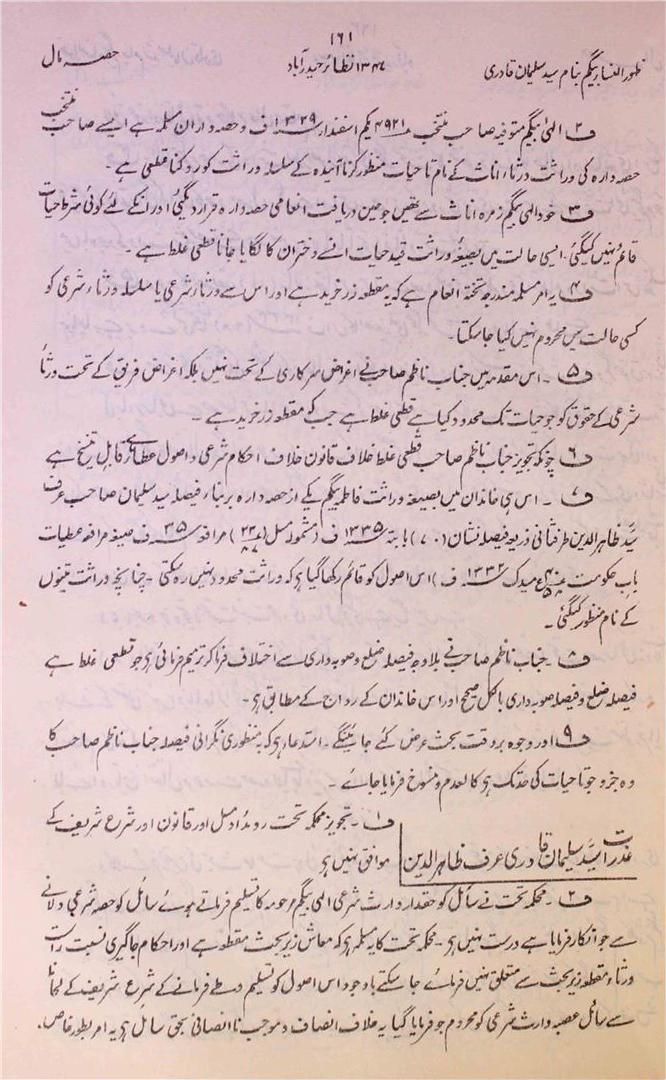 ۱۶۱
ظہور النسا بیگم بنام سید سلیمان قادری
۱۳۴۷ نظائر حیدرآباد
حصہ مال
ف ۲ الہٰی بیگم متوفیہ صاحب منتخب ۴۹۲۱ یکم اسفندار ۱۳۲۹ ف و حصہ داران مسلمہ ہے ایسے صاحب منتخب
حصہ دارہ کی وراثت ورثاء اناث کے نام تاحیات منظور کرنا آیندہ کے سلسلہ وراثت کو روکنا قطعی ہے ۔
ف ۳ خود الہی بیگم زمرہ اناث سے تھیں جو حین دریافت انعامی حصہ دارہ قرار دیگئی اور انکے لئے کوئی شرط حیات
قائم نہیں کیگئی ۔ ایسی حالت میں بصیغہ وراثت قید حیات انکے دختران کا لگایا جانا قطعی غلط ہے ۔
ف ۴ یہ امر مسلمہ مندرجہ تختہ انعام ہے کہ یہ مقطعہ زر خرید ہے اور اس سے ورثاء شرعی یا سلسلہ ورثاء شرعی کو
کسی حالت میں محروم نہیں کیا جاسکتا ۔
ف ۵ ۔ اس مقدمہ میں جناب ناظم صاحب نے اغراض سرکاری کے تحت نہیں بلکہ اغراض فریق کے تحت ورثاً
شرعی کے حقوق کو جو حیات تک محدود کیا ہے قطعی غلط ہے جب کہ مقطعہ زر خرید ہے ۔
ف ۶ چونکہ تجویز جناب ناظم صاحب قطعی غلط خلاف قانون خلاف احکام شرعی و اصول عطائے قابل تنسیخ ہے
ف ۷ ۔ اس ہی خاندان میں بصیغہ وراثت فاطمہ بیگم یکے از حصہ دارہ بر بناء فیصلہ سید سلیمان صاحب عرف
سید ظاہر الدین طرفثانی ذریعہ فیصلہ نشان (۷۰) بابتہ ۱۳۳۵ ف (مشمولہ مسل) مرافعہ ۳۵ ف صیغہ مرافعہ عطیات
باب حکومت ۱۳۳۲ ف ) اس اصول کو قائم رکھا گیا ہو کہ وراثت محدود نہیں رہ سکتی ۔ چنانچہ وراثت تینوں
کے نام منظور کیگئی ۔
ف ۸ ۔ جناب ناظم صاحب نے بلا وجہ فیصلہ ضلع و صوبہ داری سے اختلاف فرما کر ترمیم فرمائی ہو جو قطعی غلط ہے
فیصلہ ضلع و فیصلہ صوبہ داری بالکل صحیح اور اس خاندان کے رواج کے مطابق ہو ۔
ف ۹ اور وجوہ بروقت بحث عرض کئے جائینگے ۔ استدعا ہو کہ بہ منظوری نگرانی فیصلہ جناب ناظم صاحب کا
وہ جزو جو تاحیات کی حد تک ہو کالعدم و منسوخ فرمایا جائے ۔
عذرات سید سلیمان قادری عرف ظاہر الدین
ف ۱ ۔ تجویز محکمہ تحت روئداد مسل اور قانون اور شرع شریف کے
موافق نہیں ہو
ف ۲ ۔ محکمہ تحت نے سائل کو حقدار وارث شرعی الہی بیگم مرحومہ کا تسلیم فرماتے ہوئے سائل کو حصہ شرعی دلانے
سے جو انکار فرمایا ہے درست نہیں ہو ۔ محکمہ تحت کا یہ مسلمہ ہو کہ معاش زیر بحث مقطعہ ہے اور احکام جاگیری نسبت
ورثاء مقطعہ زیر بحث سے متعلق نہیں فرمائے جاسکتے باوجود اس اصول کو تسلیم و طے فرمانے کے شرع شریف کے لحاظ
سے سائل عصبہ وارث شرعی کو محروم جو فرمایا گیا یہ خلاف انصاف و موجب ناانصافی بحق سائل ہو یہ امر بطور خاص ۔